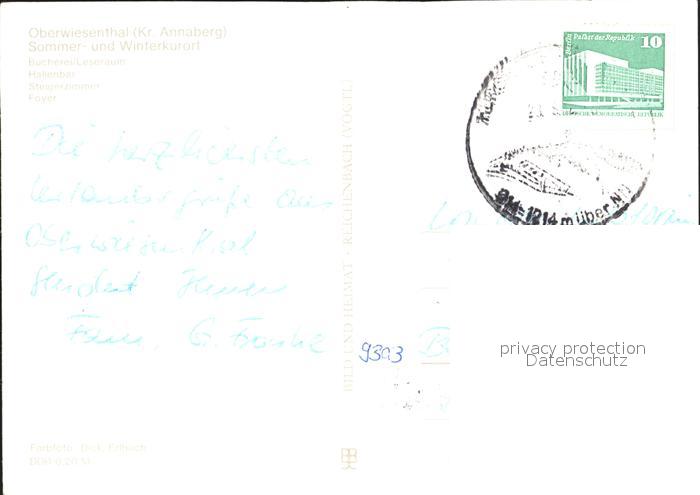 Oberwiesenthal (Kr. Annaberg)
Sommer- und Winterkurort
Bücherei/Leseraum
Hallenbar
Steigerzimmer
Foyer
Die herzlichsten
Urlaubsgrüße aus
Oberwiesenthal
sendet Ihnen
Fam. G. Franke
Farbfoto: Dick, Erlbach
DDR 0,20 M
BILD UND HEIMAT · REICHENBACH (VOGTL)
9303
Berlin Palast der Republik 10
DEUTSCHE DEMOKRATISCHE REPUBLIK
914-1214 m über NN
privacy protection
Datenschutz